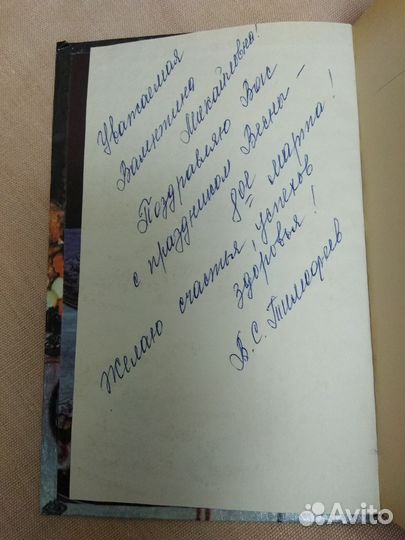 Уважаемая
Валентина
Михайловна!
Поздравляю Вас
с праздником Весны –
8ое Марта!
Желаю счастья, успехов
здоровья!
В.С. Тимофеев
Avito